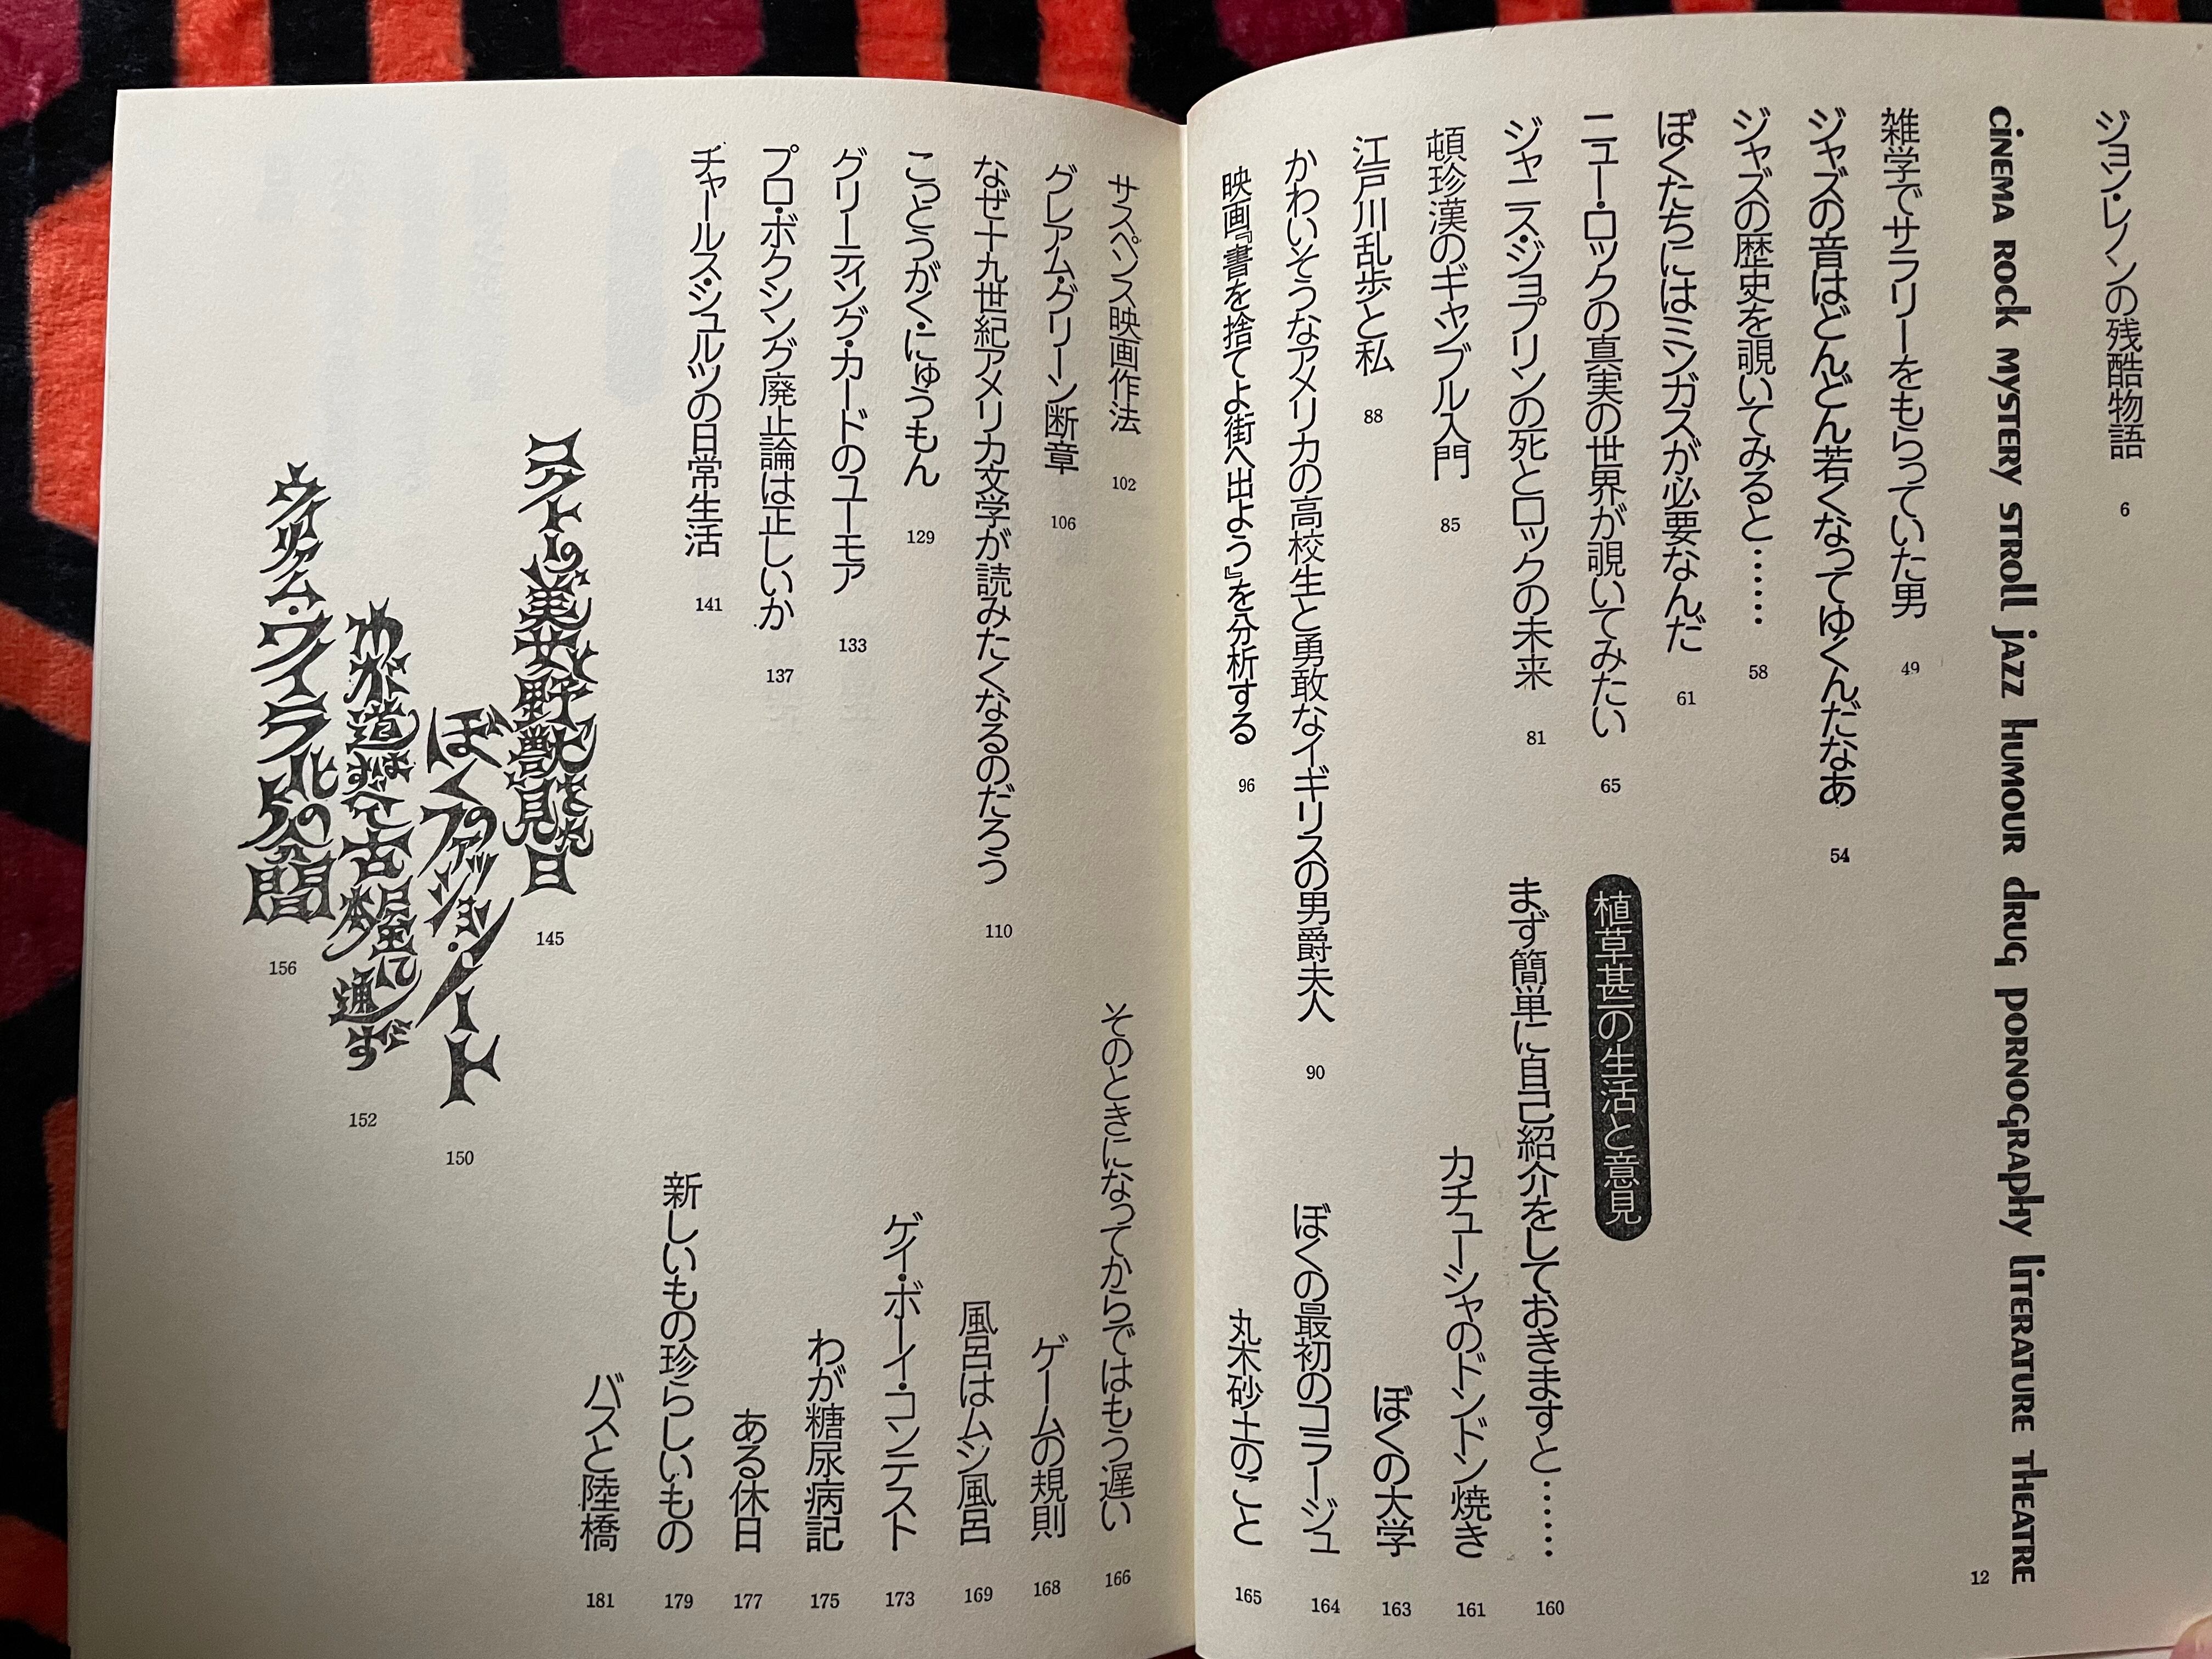 ジョン・レノンの残酷物語 6
CINEMA ROCK MYSTERY STROLL JAZZ HUMOUR DRUG PORNOGRAPHY LITERATURE THEATRE 12
雑学でサラリーをもらっていた男 49
ジャズの音はどんどん若くなってゆくんだなあ 54
ジャズの歴史を覗いてみると…… 58
ぼくたちにはミンガスが必要なんだ 61
ニュー・ロックの真実の世界が覗いてみたい 65
ジャニス・ジョプリンの死とロックの未来 81
頓珍漢のギャンブル入門 85
江戸川乱歩と私 88
かわいそうなアメリカの高校生と勇敢なイギリスの男爵夫人 90
映画『書を捨てよ街へ出よう』を分析する 96
サスペンス映画作法 102
グレアム・グリーン断章 106
なぜ十九世紀アメリカ文学が読みたくなるのだろう 110
こっとうがく・にゅうもん 129
グリーティング・カードのユーモア 133
プロ・ボクシング廃止論は正しいか 137
チャールス・シュルツの日常生活 141
コクトーの美女と野獣を見た日 145
ぼくのファッション・ノート 150
わが道はすべて古本屋に通ず 152
ウイリアム・ワイラーとの5分間 156
植草甚一の生活と意見
まず簡単に自己紹介をしておきますと…… 160
カチューシャのドンドン焼き 161
ぼくの大学 163
ぼくの最初のコラージュ 164
丸木砂土のこと 165
そのときになってからではもう遅い 166
ゲームの規則 168
風呂はムシ風呂 169
ゲイ・ボーイ・コンテスト 173
わが糖尿病記 175
ある休日 177
新しいもの珍らしいもの 179
バスと陸橋 181